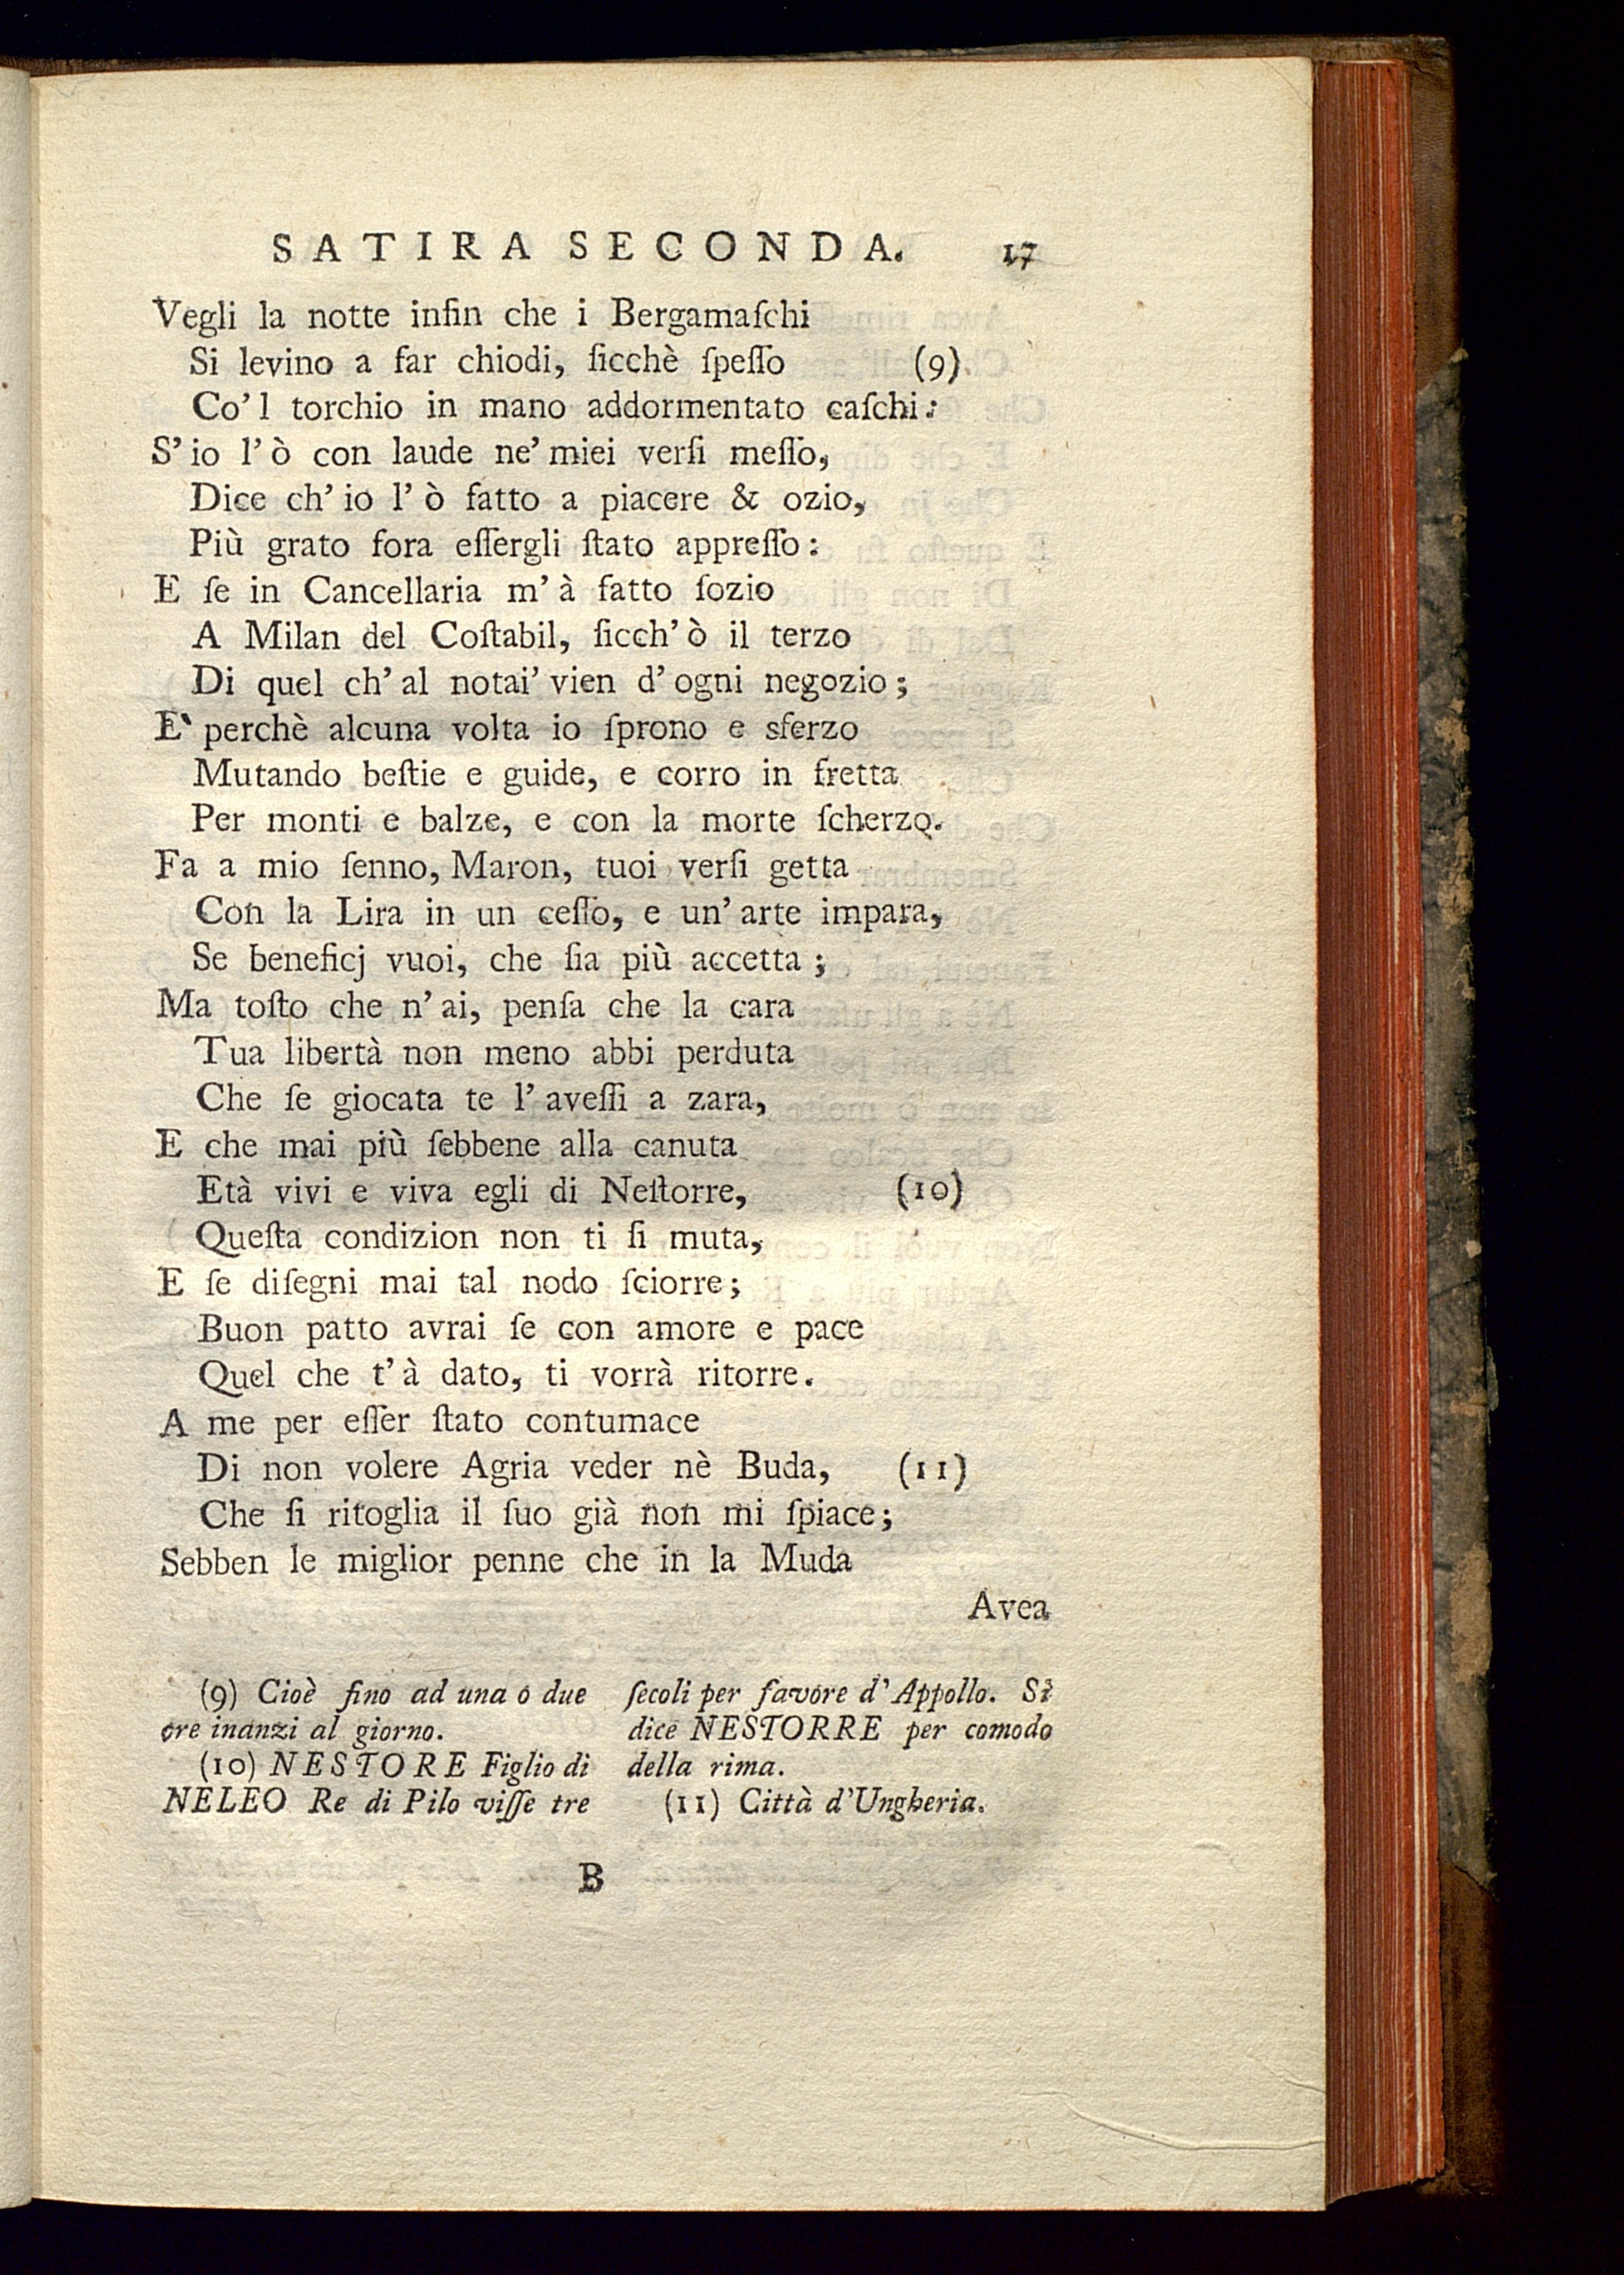 SATIRA SECONDA. 17
Vegli la notte infin che i Bergamaſchi
Si levino a far chiodi, ſicchè ſpeſſo (9)
Co' l torchio in mano addormentato caſchi:
S' io l' ò con laude ne' miei verſi meſſo,
Dice ch' io l' ò fatto a piacere & ozio,
Più grato fora eſſergli ſtato appreſſo:
E ſe in Cancellaria m' à fatto ſozio
A Milan del Coſtabil, ſicch' ò il terzo
Di quel ch' al notai' vien d' ogni negozio;
E' perchè alcuna volta io ſprono e sferzo
Mutando beſtie e guide, e corro in fretta
Per monti e balze, e con la morte ſcherzo.
Fa a mio ſenno, Maron, tuoi verſi getta
Con la Lira in un ceſſo, e un' arte impara,
Se beneficj vuoi, che ſia più accetta;
Ma toſto che n' ai, penſa che la cara
Tua libertà non meno abbi perduta
Che ſe giocata te l' aveſſi a zara,
E che mai più ſebbene alla canuta
Età vivi e viva egli di Neſtorre, (10)
Queſta condizion non ti ſi muta,
E ſe diſegni mai tal nodo ſciorre;
Buon patto avrai ſe con amore e pace
Quel che t' à dato, ti vorrà ritorre.
A me per eſſer ſtato contumace
Di non volere Agria veder nè Buda, (11)
Che ſi ritoglia il ſuo già non mi ſpiace;
Sebben le miglior penne che in la Muda
Avea
(9) Cioè fino ad una o due
ore inanzi al giorno.
(10) NESTORE Figlio di
NELEO Re di Pilo viſſe tre
ſecoli per favore d' Appollo. Si
dice NESTORRE per comodo
della rima.
(11) Città d'Ungheria.
B